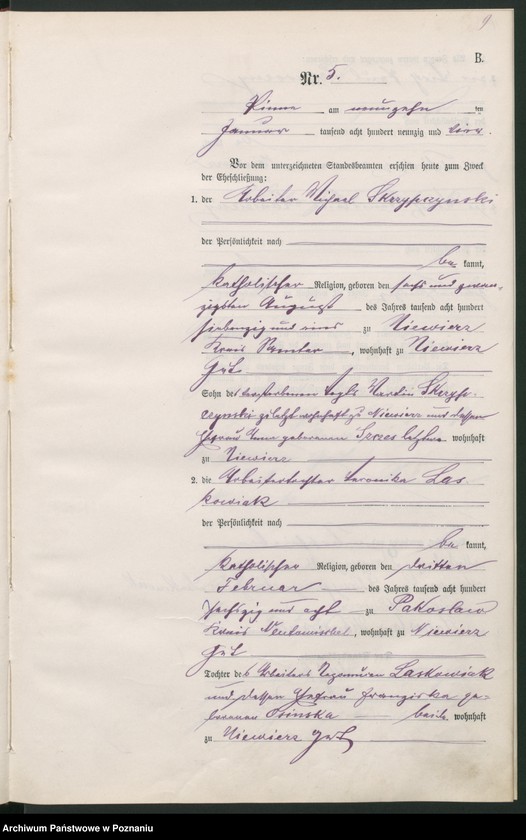 9
B.
Nr. 5.
Pinne am neunzehn ten
Januar tausend acht hundert neunzig und vier.
Vor dem unterzeichneten Standesbeamten erschien heute zum Zweck
der Eheschließung:
1. der Arbeiter Michael Skrzypczynski
der Persönlichkeit nach
be kannt,
katholischer Religion, geboren den sechs und zwan-
zigsten August des Jahres tausend acht hundert
siebenzig und eins zu Niewierz
Kreis Samter, wohnhaft zu Niewierz
Gut
Sohn des verstorbenen Vogts Martin Skrzyp-
czynski zuletzt wohnhaft zu Niewierz und dessen
Ehefrau geborenen letztere wohnhaft
zu Niewierz
2. die Arbeitertochter Veronika Las
kowiak
der Persönlichkeit nach
be kannt,
katholischer Religion, geboren den dritten
Februar des Jahres tausend acht hundert
sechszig und acht zu Pakoslaw
Kreis Neutomischel, wohnhaft zu Niewierz
Gut
Tochter des Arbeiters Laskowiak
und dessen Ehefrau Franziska ge-
borenen Osinska beide wohnhaft
zu Niewierz Gut
Archiwum Państwowe w Poznaniu